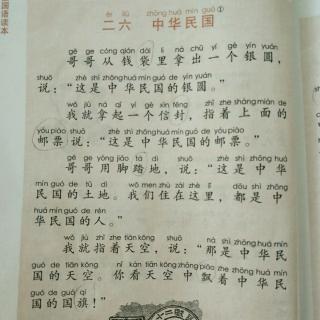 国语读本
èr liù zhōng huá mín guó
二六 中华民国①
gē ge cóng qián dài lǐ ná chū yí gè yín yuán
哥哥从钱袋里拿出一个银圆，
shuō zhè shì zhōng huá mín guó de yín yuán
说：“这是中华民国的银圆。”
wǒ jiù ná qǐ yí gè xìn fēng zhǐ zhe shàng miàn de
我就拿起一个信封，指着上面的
yóu piào shuō zhè shì zhōng huá mín guó de yóu piào
邮票说：“这是中华民国的邮票。”
gē ge yòng jiǎo tà dì shuō zhè shì zhōng huá
哥哥用脚踏地，说：“这是中华
mín guó de tǔ dì wǒ men zhù zài zhè lǐ dōu shì zhōng
民国的土地。我们住在这里，都是中
huá mín guó de rén
华民国的人。”
wǒ jiù zhǐ zhe tiān kōng shuō nà shì zhōng huá mín
我就指着天空，说：“那是中华民
guó de tiān kōng nǐ kàn tiān kōng zhōng piāo zhe zhōng huá mín
国的天空。你看天空中飘着中华民
guó de guó qí
国的国旗！”